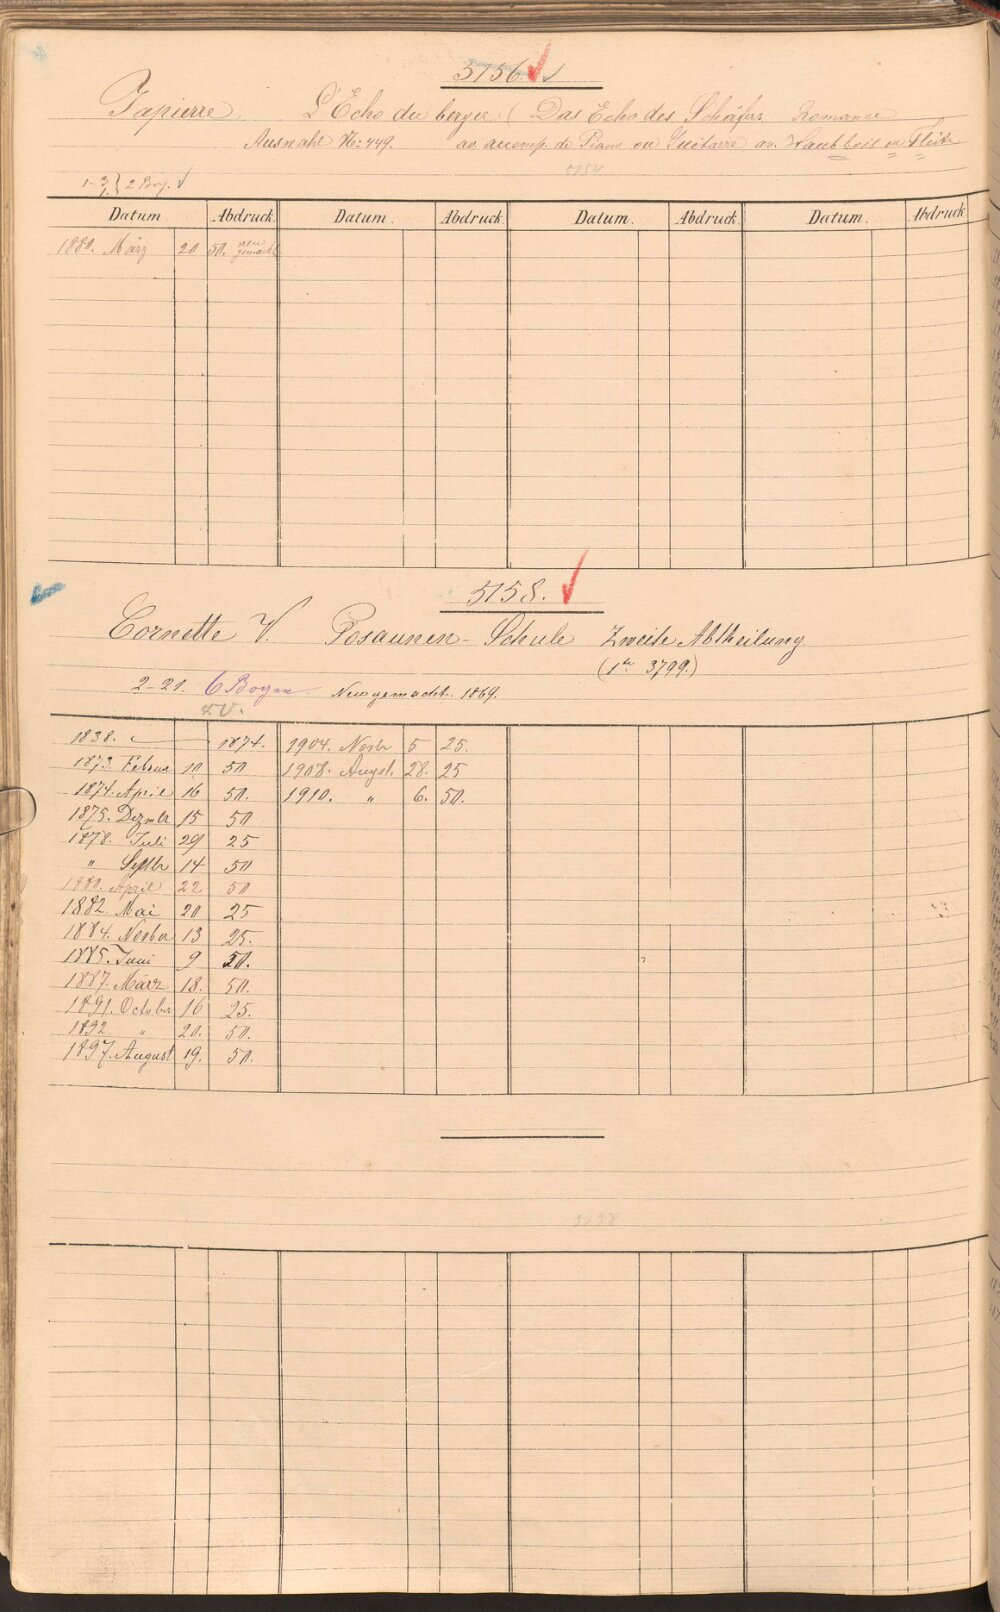 5156.
Papierre. L'Echo du berger (Das Echo des Schäfers Romance
Auswahl No: 449. av. accomp. de Piano ou Guitarre av. Hautbois ou Flûte
5154
1-3/1.} 2 Bog.
Datum Abdruck Datum. Abdruck Datum. Abdruck Datum. Abdruck
1880. März 20 50. neu gemacht
5158.
Cornette V. Posaunen-Schule Zweite Abtheilung
(1te 3799.)
2-21. 6 Bogen Neu gemacht. 1869.
1838. 1874. 1904. Novbr 5 25.
1873. Februar 10 50 1908. Augst. 28. 25
1874. April 16 50. 1910. " 6. 50.
1875. Dezmbr 15 50
1878. Juli 29 25
" Septbr 14 50
1880. April 22 50
1882. Mai 20 25
1884. Novbr 13 25.
1885. Juni 9 50.
1887. März 18. 50.
1891. October 16 25.
1892 " 20. 50.
1897. August 19. 50.
5158